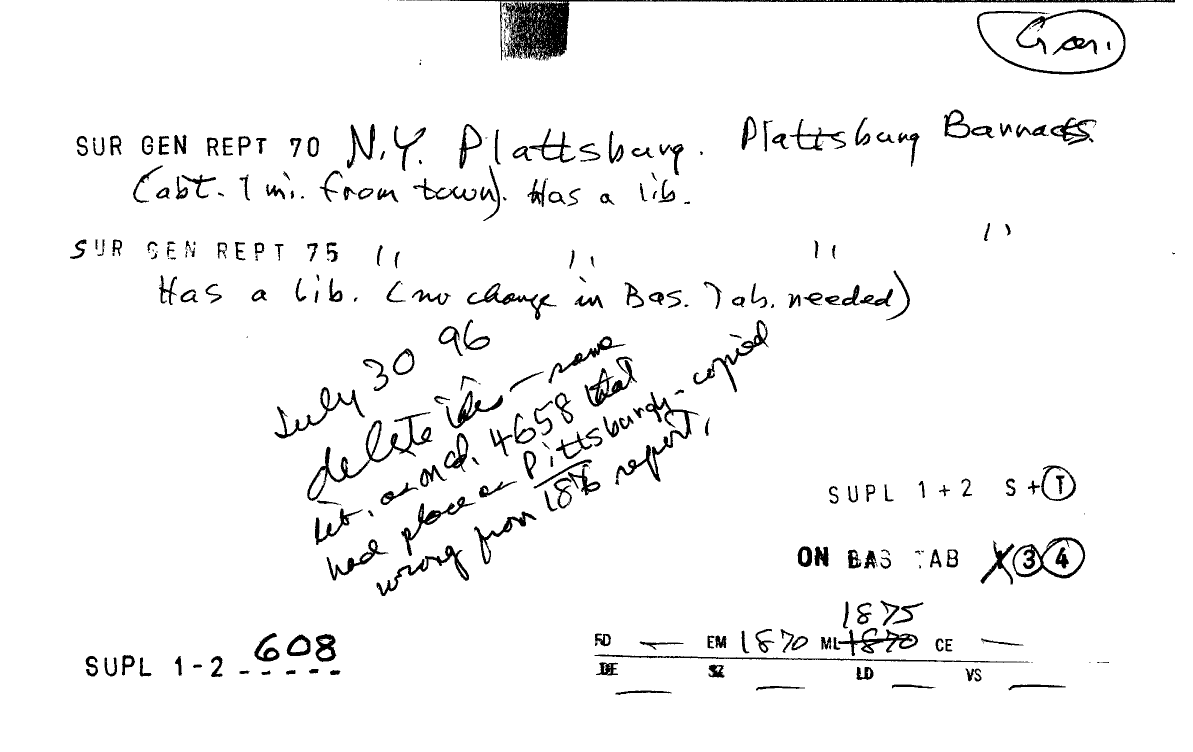 Gar.
SUR GEN REPT 70 N.Y. Plattsburg. Plattsburg Barracks
(abt. 1 mi. from town). Has a lib.
SUR GEN REPT 75 " " " "
Has a lib. (no change in Bas. Tab. needed)
July 30 96
delete this – same
lib. as on cd. 4658 that
had place as Pittsburgh - copied
wrong from 1876 report.
SUPL 1+2 S+T
ON BAS TAB X 3 4
1875
FD — EM 1870 ML 1870 CE —
DE SZ LD VS
SUPL 1-2 608